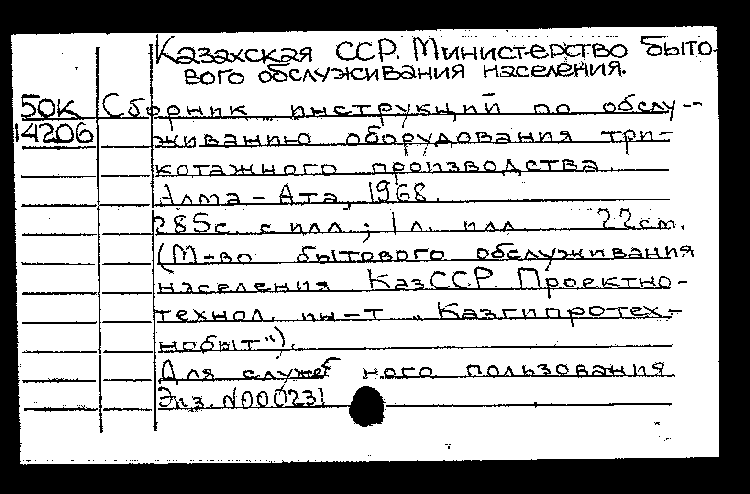 Казахская ССР. Министерство быто-
вого обслуживания населения.
50К Сборник инструкций по обслу-
14206 живанию оборудования три-
котажного производства.
Алма-Ата, 1968.
285с. с илл.; 1 л. илл. 22см.
(М-во бытового обслуживания
населения КазССР. Проектно-
технол. ин-т „Казгипротех-
нобыт").
Для служебного пользования
Экз. №000231